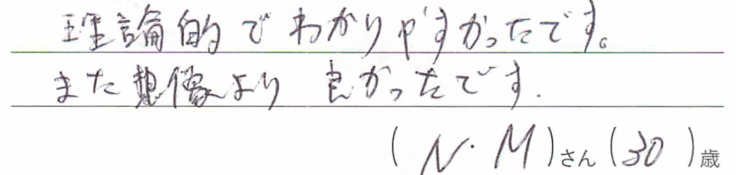 理論的でわかりやすかったです。
また想像より良かったです.
(N.M)さん(30)歳